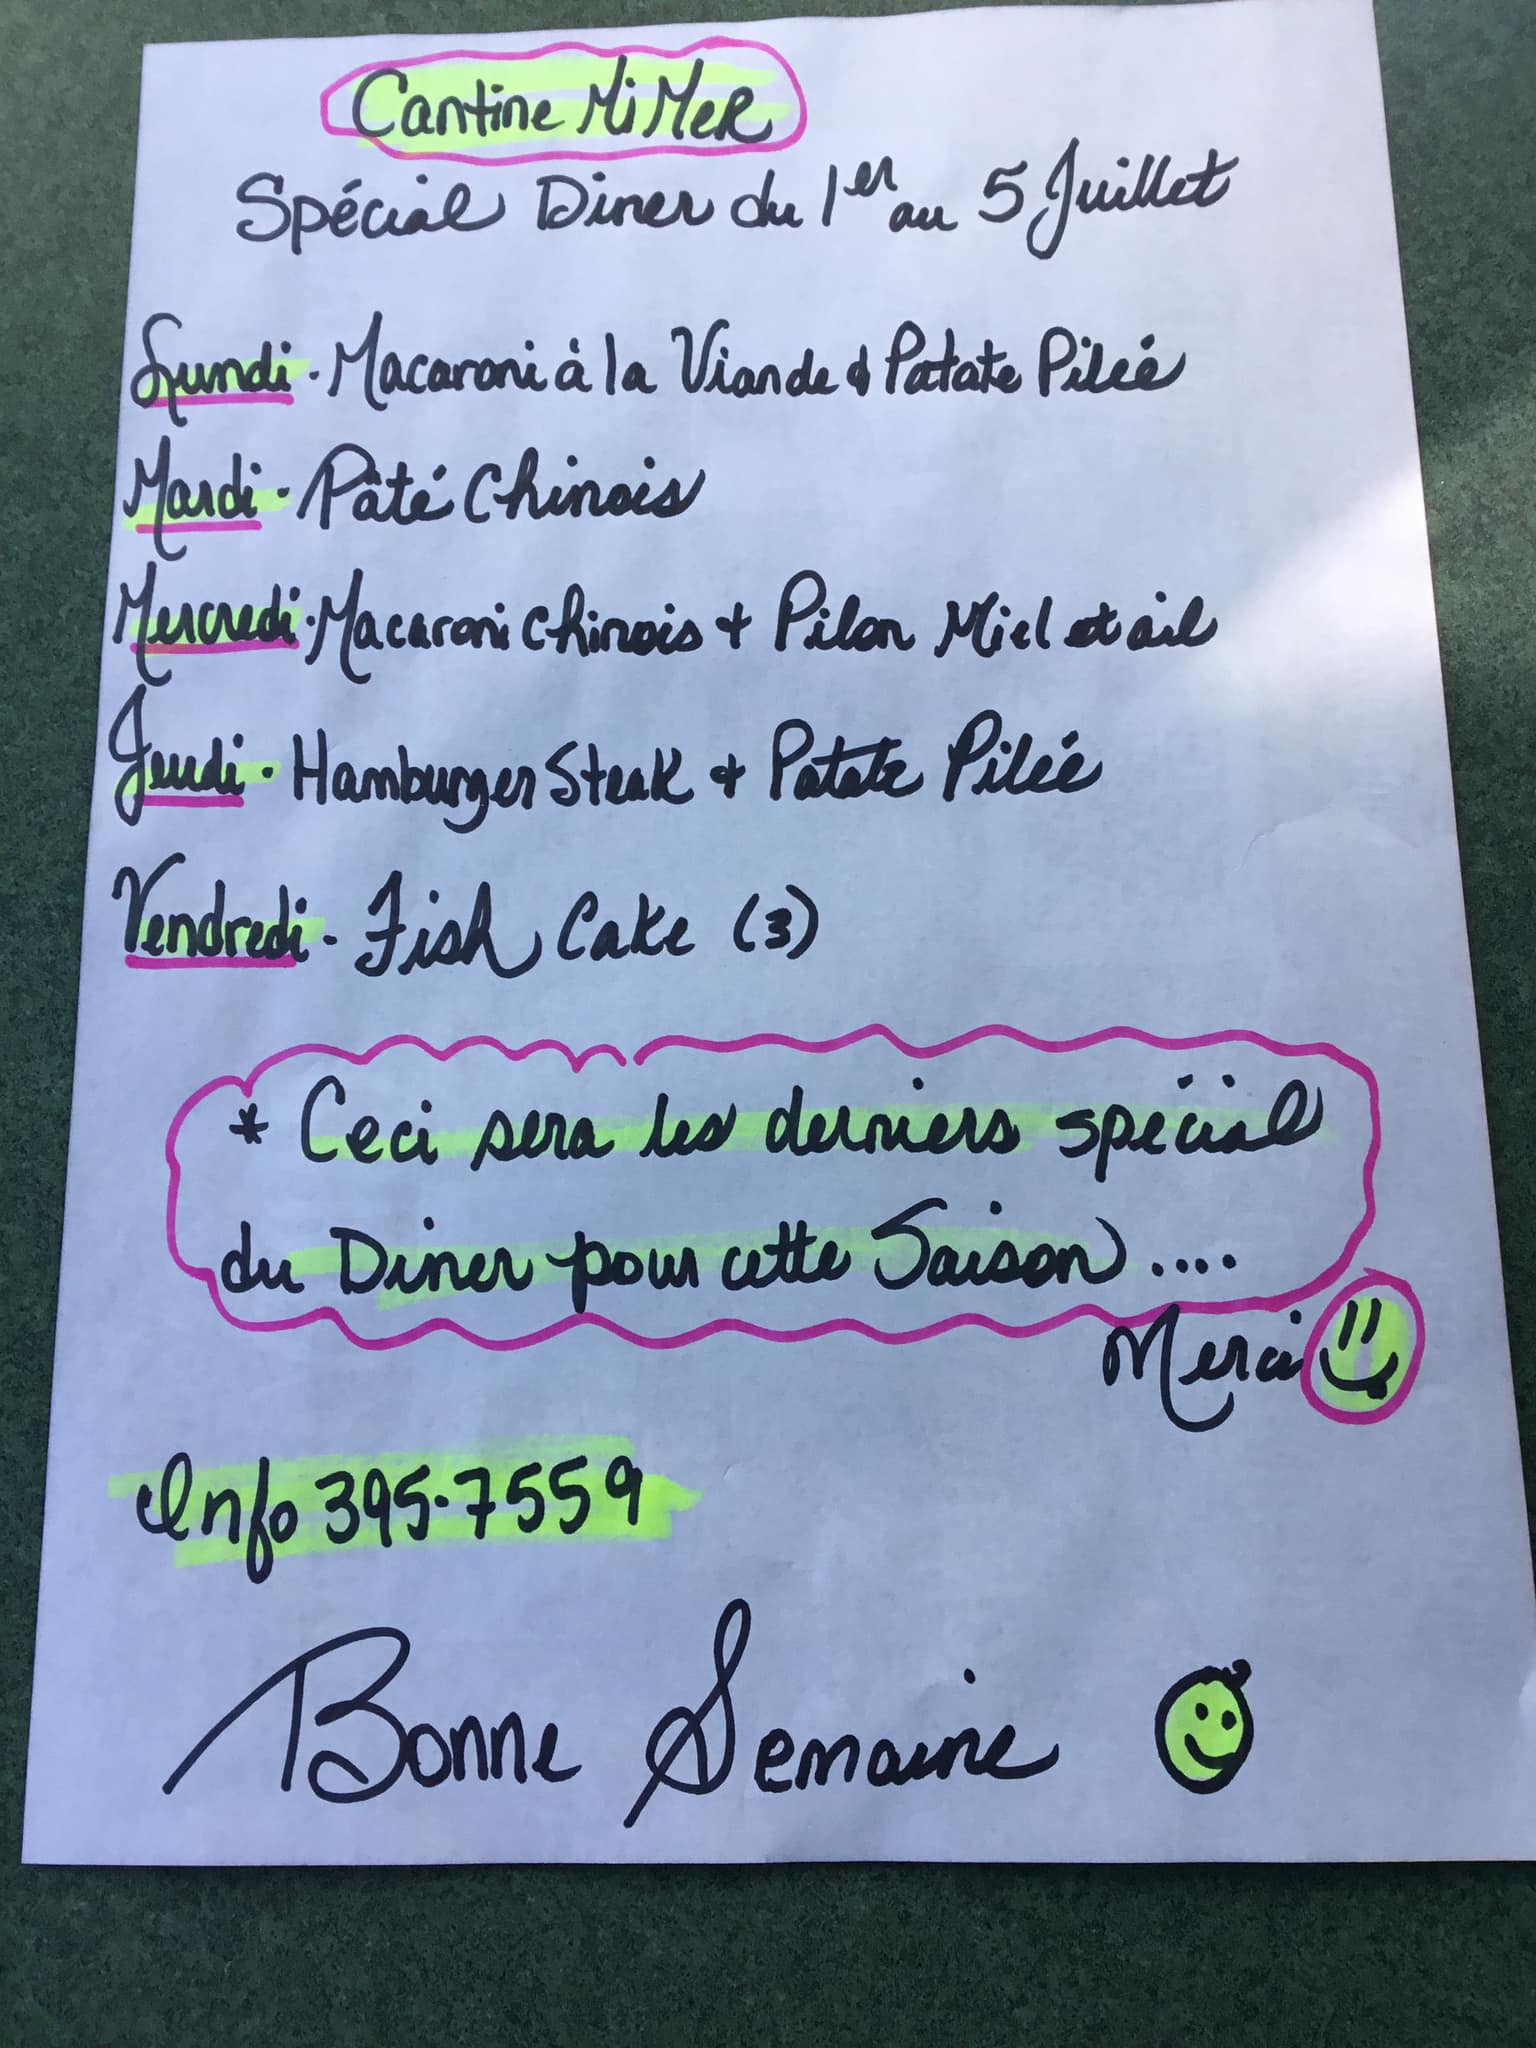 Cantine Mi Mer
Spécial Diner du 1er au 5 Juillet
Lundi. Macaroni à la Viande & Patate Pilée
Mardi. Pâté Chinois
Mercredi. Macaroni Chinois + Pilon Miel et ail
Jeudi. Hamburger Steak + Patate Pilée
Vendredi. Fish Cake (3)
* Ceci sera les derniers spécial
du Diner pour cette Saison....
Merci
Info 395-7559
Bonne Semaine